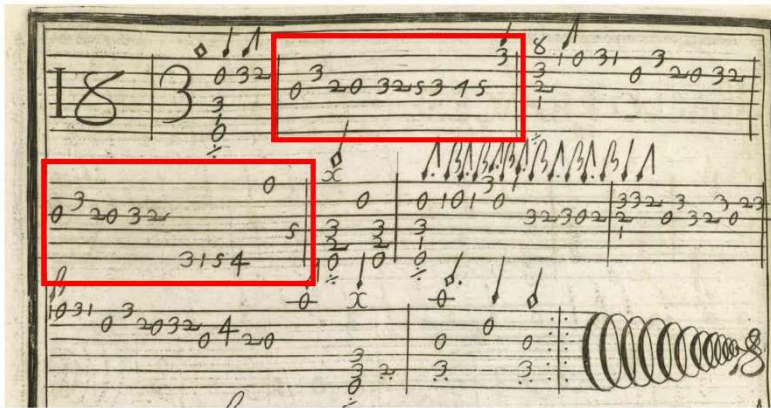 18 3 032 310 0 3 20 32 5 3 4 5 3 8 3 2 1 1 0 31 0 3 20 32
0 3 20 32 3 1 5 4 0 5 x 3 2 0 0 3 2 0 0 3 1 0 101 3 0 32 302 332 2 1 0 3 32 0 3 23
1031 0 3 2032 0 4 20 0 x 3 3 0 2 0 0 3 0 0 3